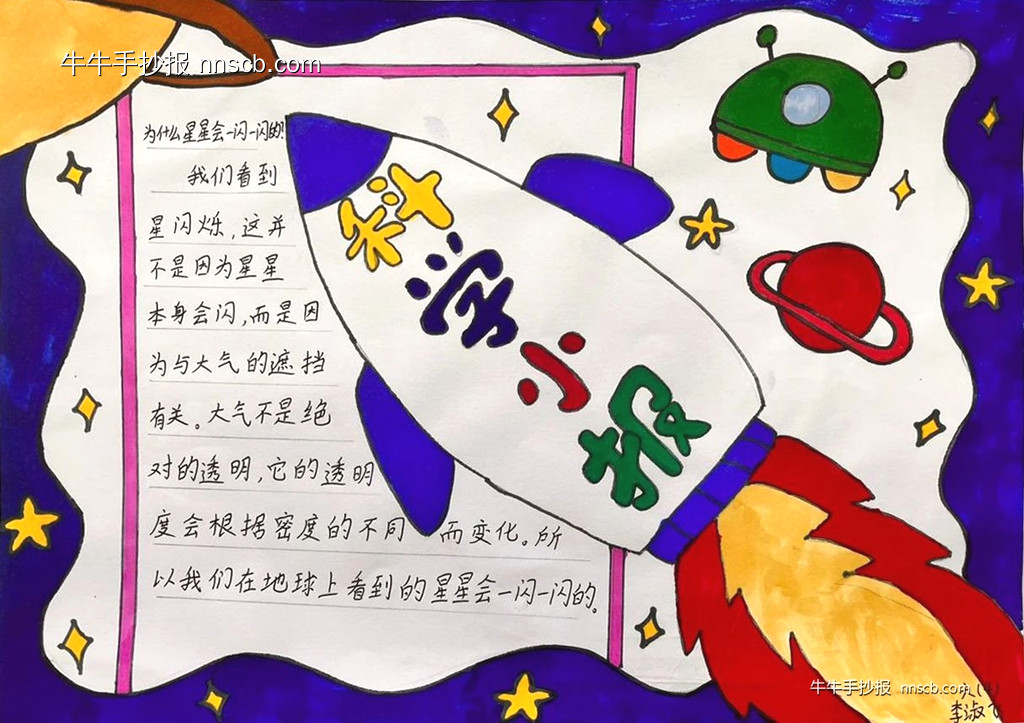 牛牛手抄报 nnscb.com
为什么星星会一闪一闪的!
我们看到
星闪烁,这并
不是因为星星
本身会闪,而是因
为与大气的遮挡
有关。大气不是绝
对的透明,它的透明
度会根据密度的不同 而变化。所
以我们在地球上看到的星星会一闪一闪的。
科学小报
牛牛手抄报 nnscb.com
李淑